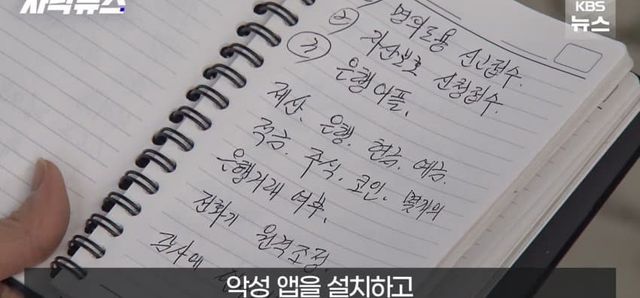 자막뉴스.
KBS
뉴스
명의도용 신고접수.
② 자산보호 신청접수.
③ 은행어플.
재산, 은행, 현금, 예금,
적금, 주식, 코인, 몇개의
은행거래 여부.
전화기 원격조정.
감사에
악성 앱을 설치하고